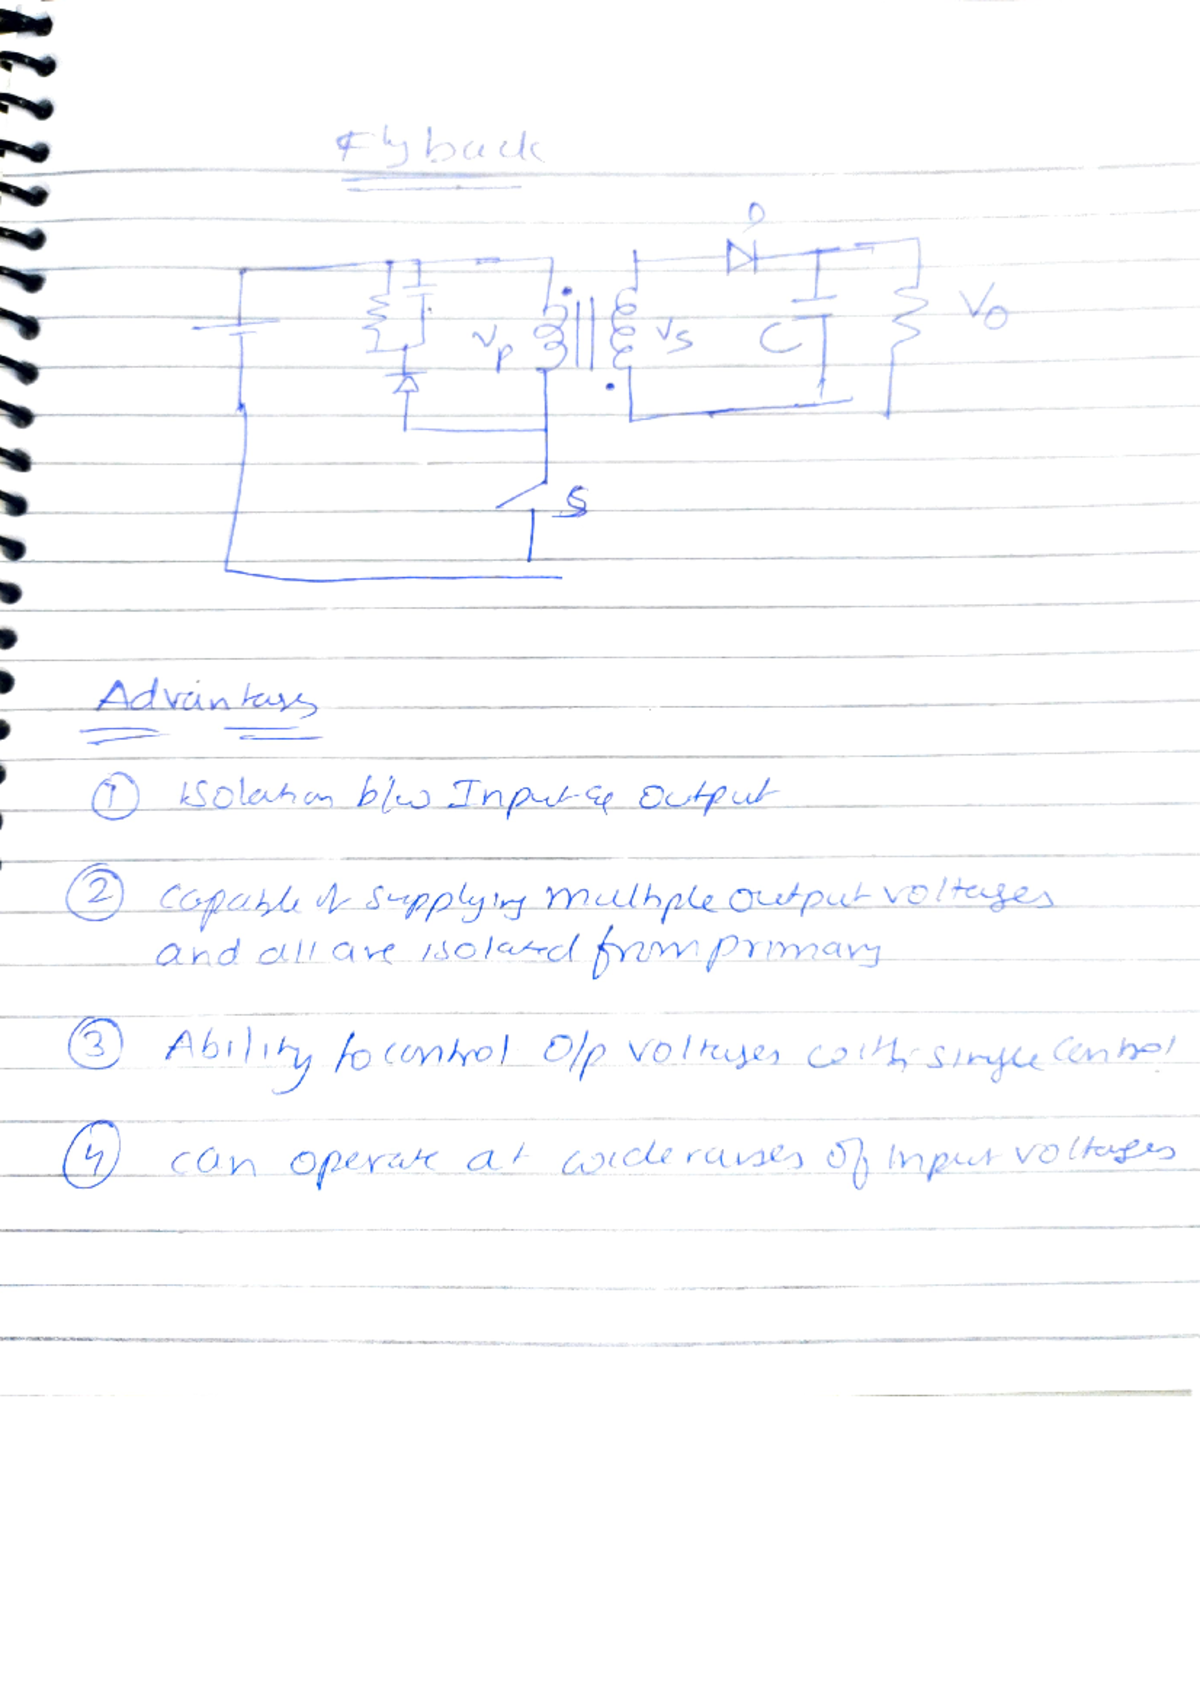 Flyback
D
Vp
Vs
C
Vo
S
Advantages
① Isolation b/w Input & output
② capable of supplying multiple output voltages
and all are isolated from primary
③ Ability to control O/p voltages with single control
④ can operate at wide ranges of Input voltages